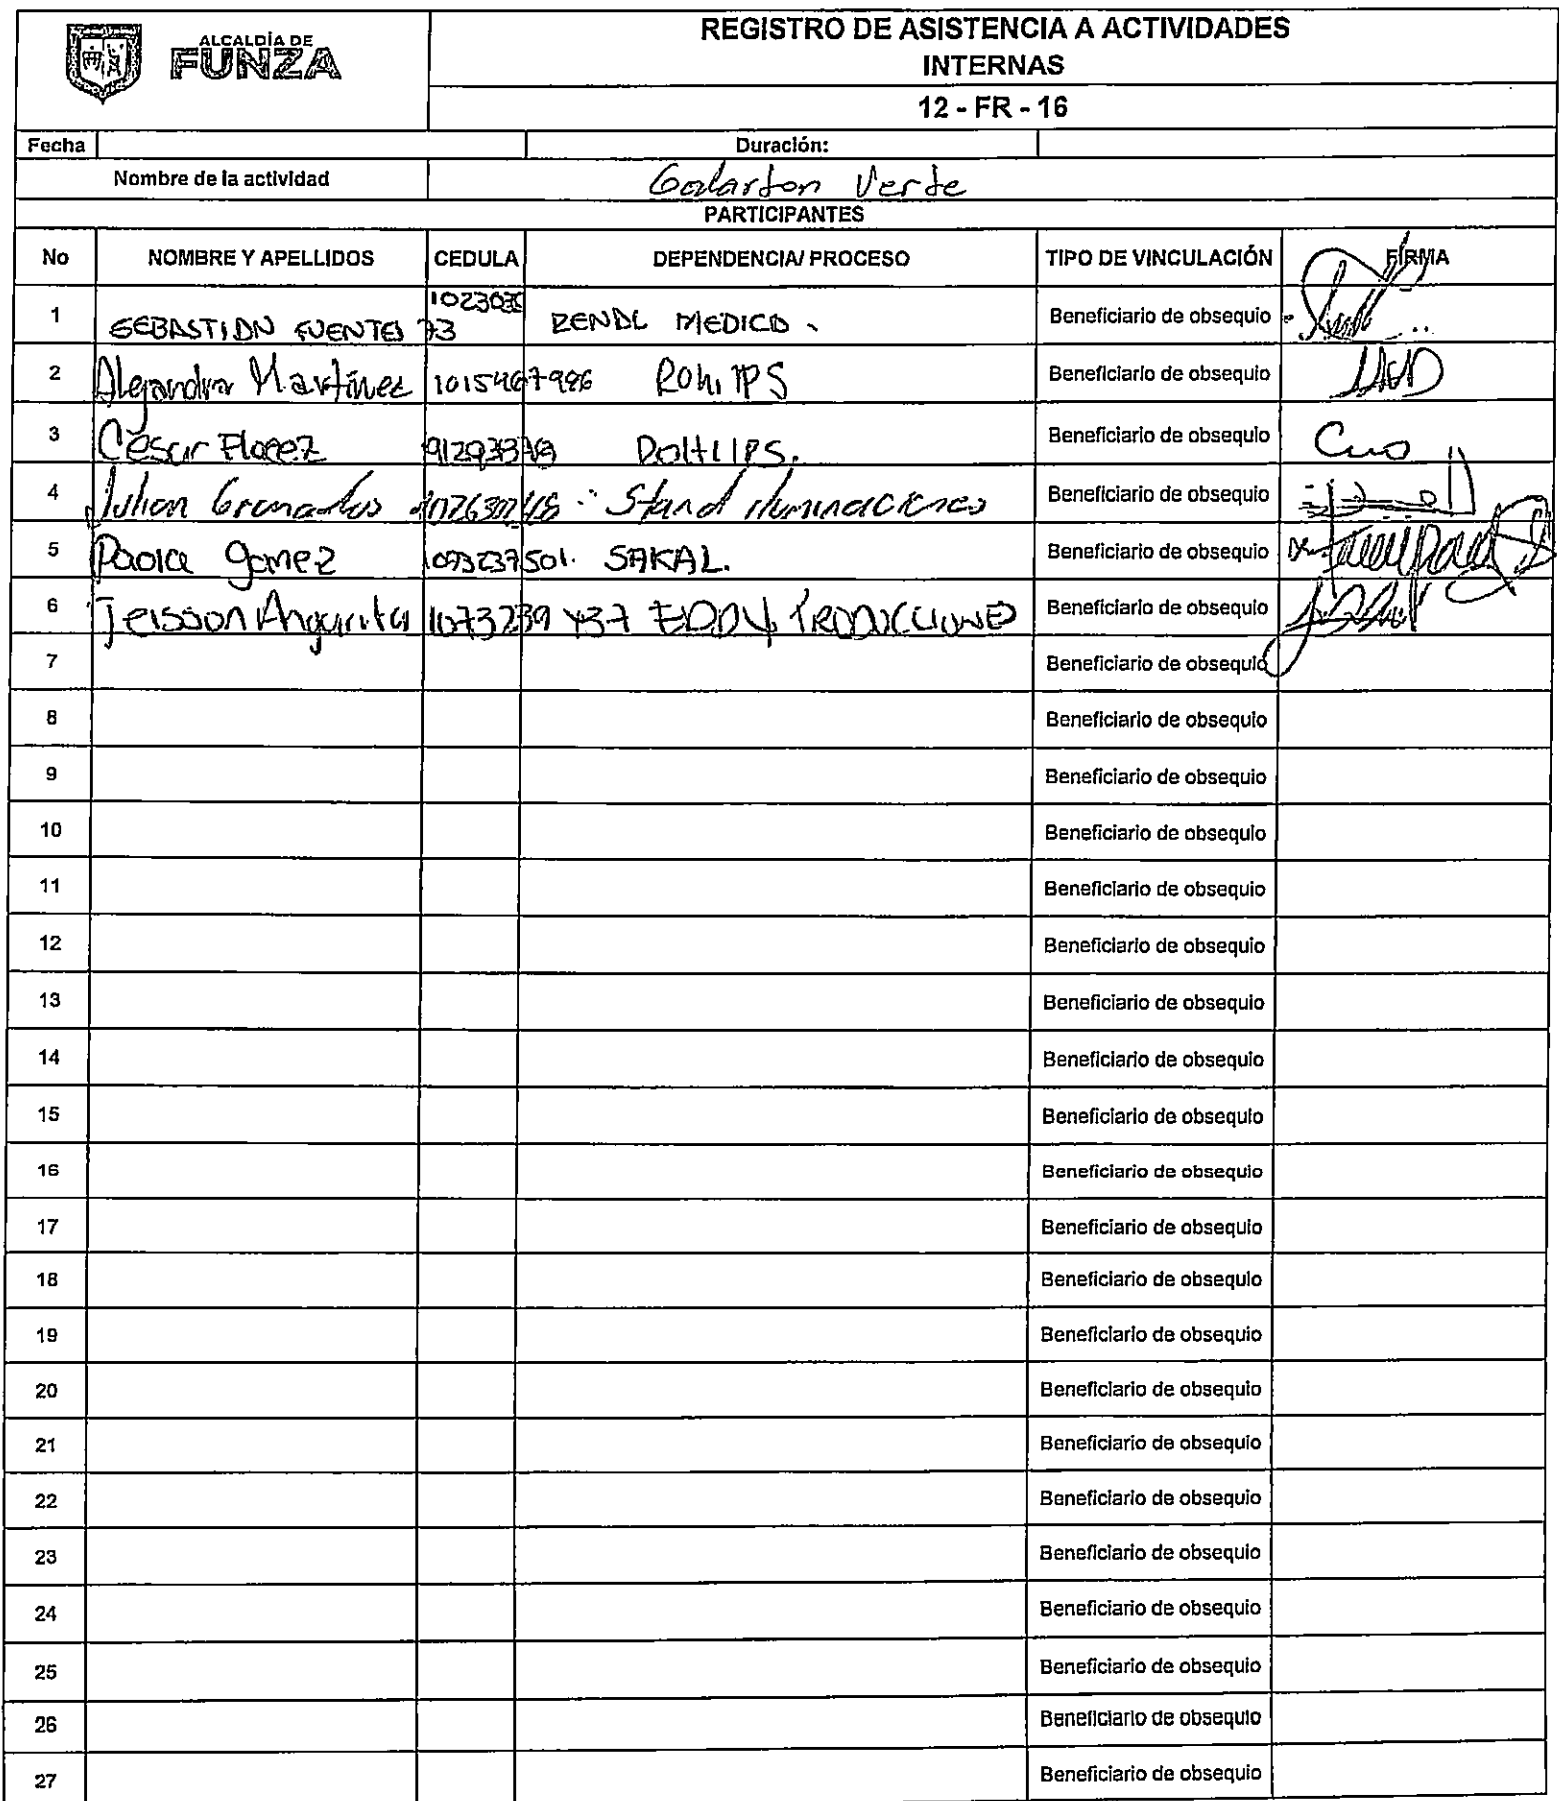 ALCALDÍA DE
FUNZA
REGISTRO DE ASISTENCIA A ACTIVIDADES
INTERNAS
12 - FR - 16
Fecha Duración:
Nombre de la actividad Galarton Verde
PARTICIPANTES
No NOMBRE Y APELLIDOS CEDULA DEPENDENCIA/ PROCESO TIPO DE VINCULACIÓN FIRMA
1 SEBASTIAN FUENTES MEDICO Beneficiario de obsequio
2 Alejandra Martínez 1015467986 Rohi IPS Beneficiario de obsequio
3 César Florez Beneficiario de obsequio
4 Julian Granados Stand iluminaciones Beneficiario de obsequio
5 Paola Gomez 1073237501. SAKAL. Beneficiario de obsequio
6 Jeisson Angarita 1073239 437 EDDY PRODUCCIONES Beneficiario de obsequio
7 Beneficiario de obsequio
8 Beneficiario de obsequio
9 Beneficiario de obsequio
10 Beneficiario de obsequio
11 Beneficiario de obsequio
12 Beneficiario de obsequio
13 Beneficiario de obsequio
14 Beneficiario de obsequio
15 Beneficiario de obsequio
16 Beneficiario de obsequio
17 Beneficiario de obsequio
18 Beneficiario de obsequio
19 Beneficiario de obsequio
20 Beneficiario de obsequio
21 Beneficiario de obsequio
22 Beneficiario de obsequio
23 Beneficiario de obsequio
24 Beneficiario de obsequio
25 Beneficiario de obsequio
26 Beneficiario de obsequio
27 Beneficiario de obsequio